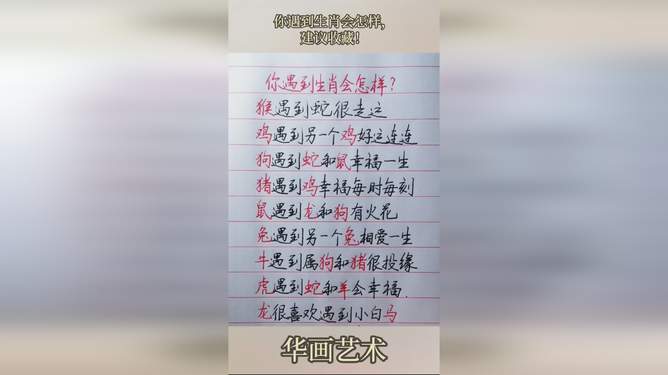 你遇到生肖会怎样,
建议收藏!
你遇到生肖会怎样?
猴遇到蛇很走运
鸡遇到另一个鸡好运连连
狗遇到蛇和鼠幸福一生
猪遇到鸡幸福每时每刻
鼠遇到龙和狗有火花
兔遇到另一个兔相爱一生
牛遇到属狗和猪很投缘
虎遇到蛇和羊会幸福.
龙很喜欢遇到小白马
华画艺术